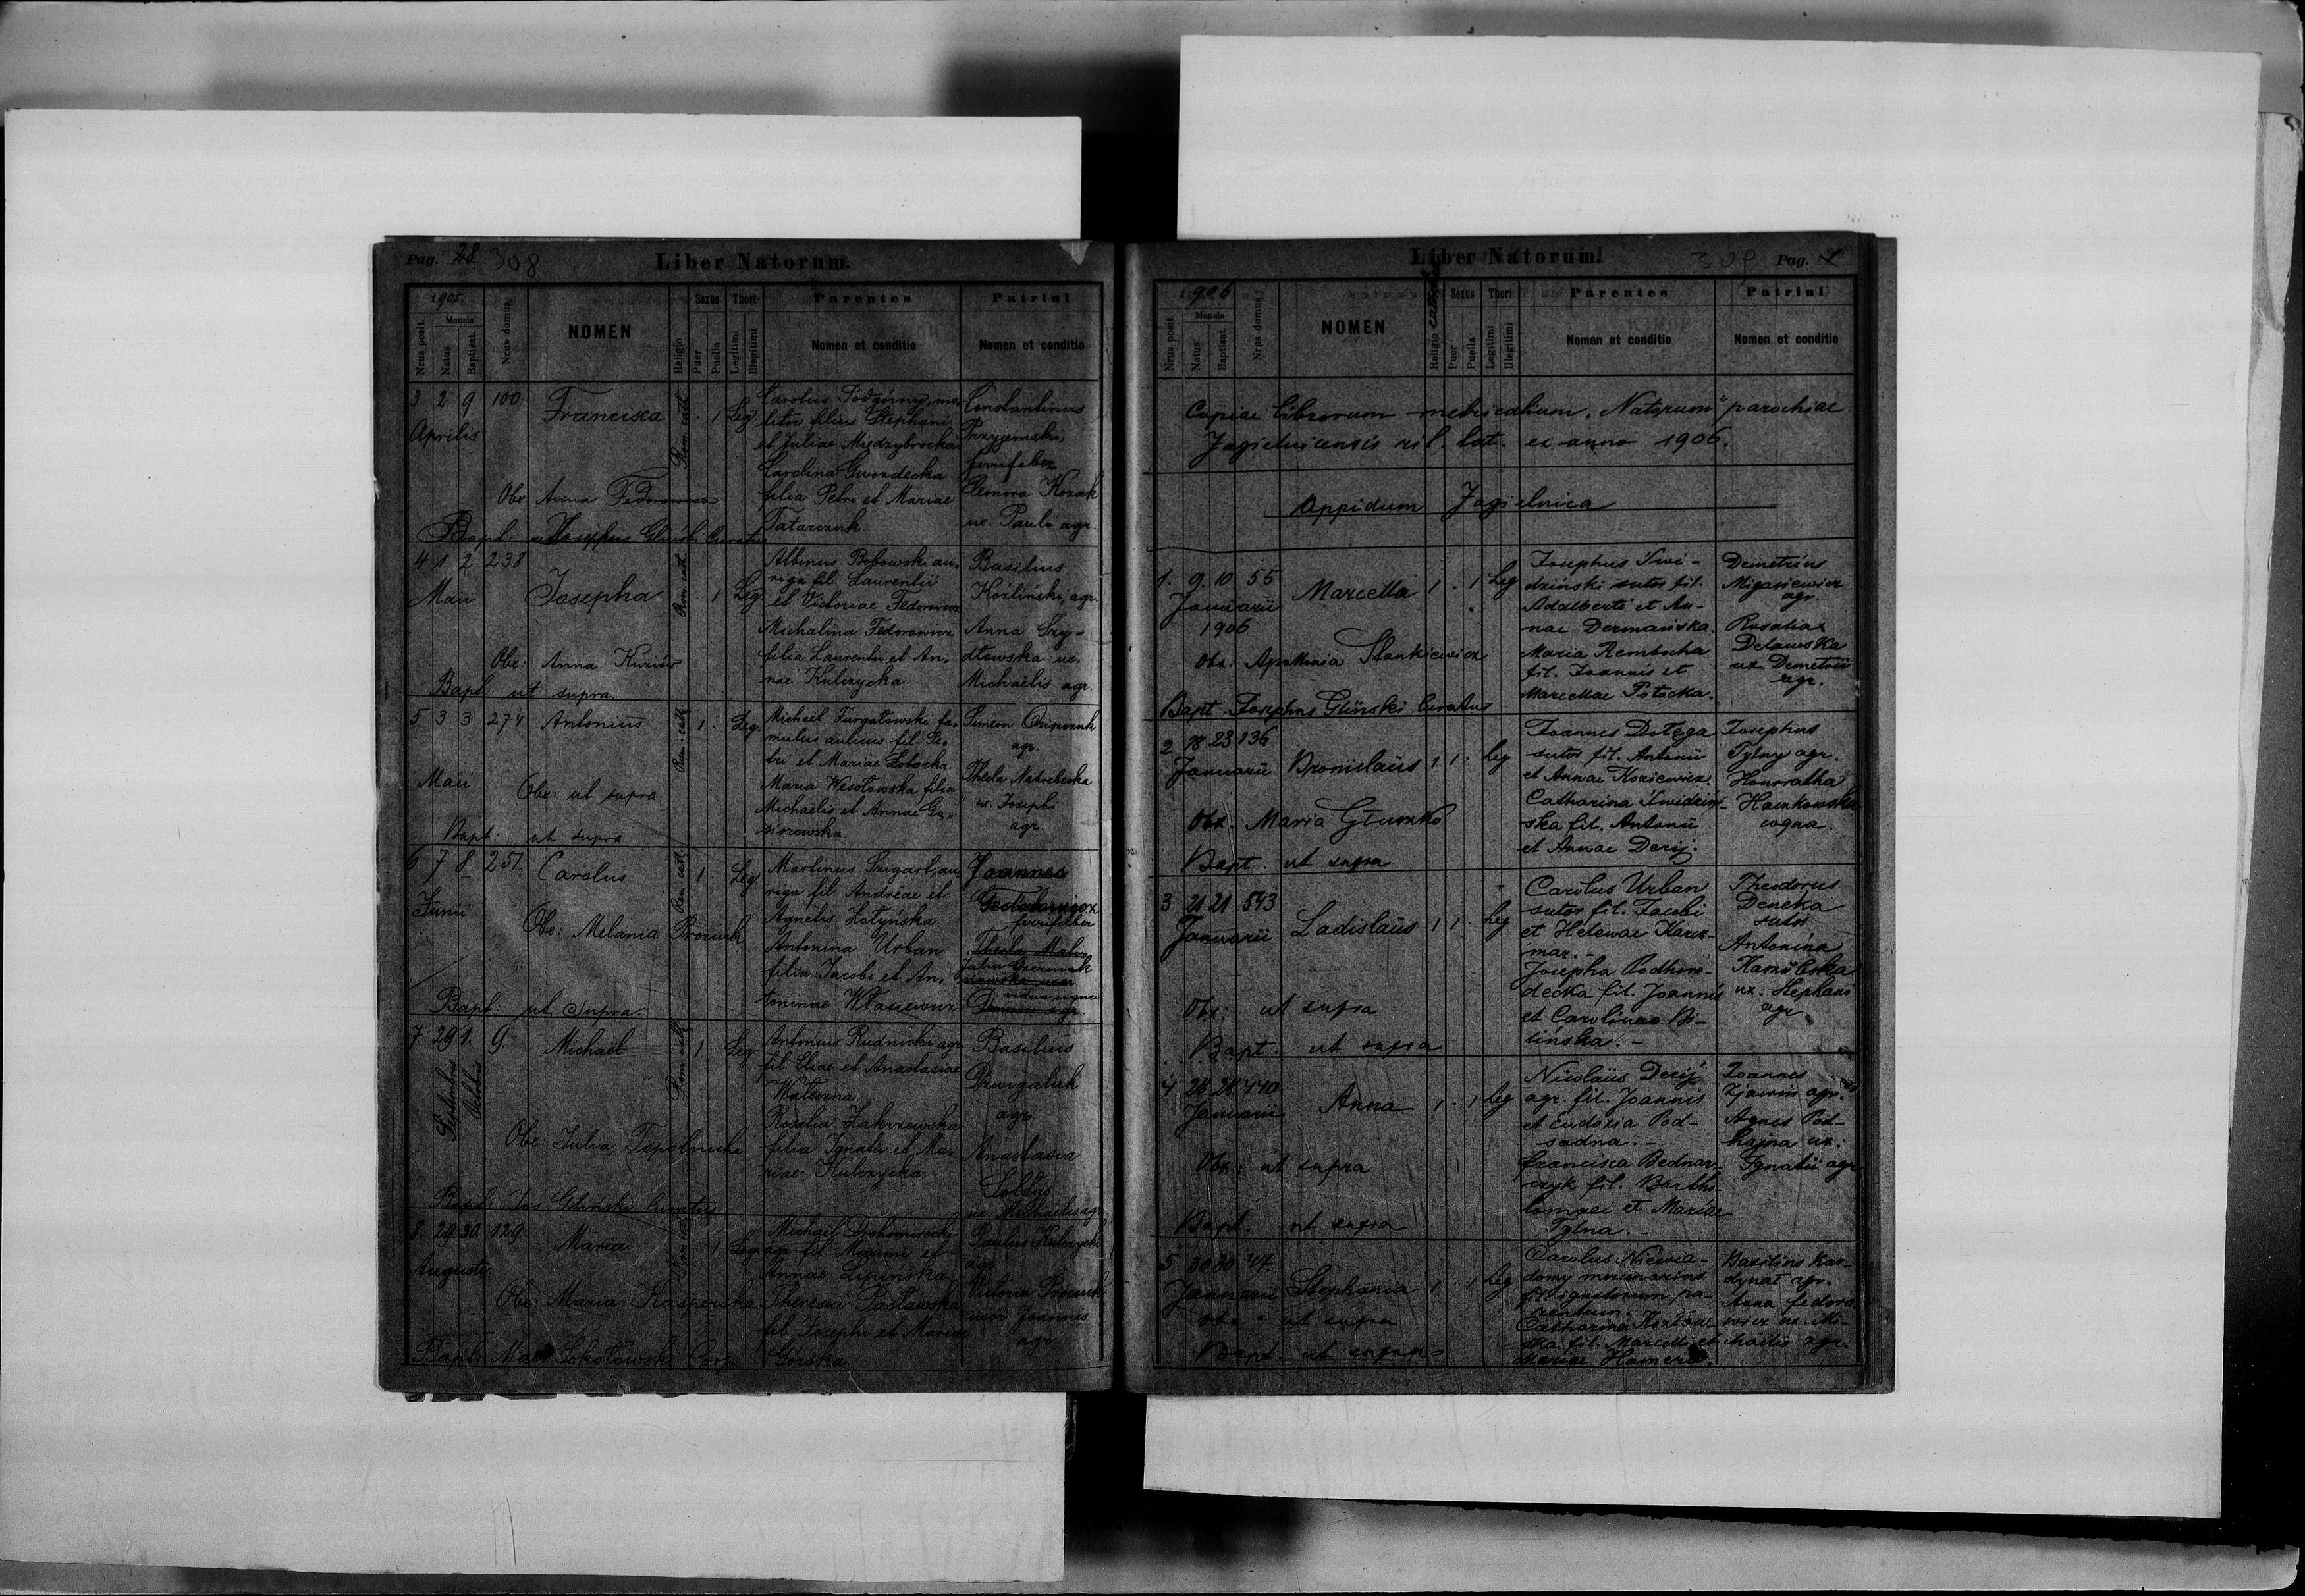 Pag. 28 308
Liber Natorum.
1905.
Nrus posit.
Mensis
Natus
Baptisat.
Nrus domus
NOMEN
Religio
Sexus
Puer
Puella
Thori
Legitimi
Illegitimi
Parentes
Nomen et conditio
Patrini
Nomen et conditio
3 2 9 100
Aprilis
Francisca
Rom. cath.
1 Leg
Carolus Podgórny, mo-
litor filius Stephani
et Juliae Międzybrocka
Carolina Gwozdecka
filia Petri et Mariae
Tatarczuk
Constantinus
Przyjemski,
ferrifaber
Eleonora Kozak
ux. Pauli agr.
Obs. Anna Fedorowicz
Bapt. Josephus Gliński Curatus
4 1 2 238
Maii
Josepha
Rom. cath.
1 Leg.
Albinus Bobowski au-
riga fil. Laurentii
et Victoriae Fedorowicz
Michalina Fedorowicz
filia Laurentii et An-
nae Kulczycka.
Basilius
Kozliński, agr.
Anna Szy-
dłowska ux.
Michaelis agr.
Obs: Anna Kuziów
Bapt: ut supra.
5 3 3 274
Maii
Antonius
Rom. cath.
1. Leg.
Michaël Furgatowski fa-
mulus aulicus fil. Pe-
tri et Mariae
Maria Wesołowska filia
Michaëlis et Annae Gą-
siorowska
Simeon
agr.
Thecla
ux. Josephi
agr
Obs: ut supra
Bapt: ut supra
6 7 8 251.
Junii
Carolus
Rom. cath.
1. Leg.
Martinus Szigart, au-
riga fil. Andreae et
Agnetis Zatyńska
Antonina Urban
filia Jacobi et An-
toninae Własiewicz
Joannes
ferrifaber
Julia Czermak
vidua, cogna
Obs: Melania Prociuk
Bapt ut supra.
7 29 1. 9.
Septembris
Octobris
Michaël
Rom. cath.
1. Leg.
Antonius Rudnicki agr
fil Eliae et Anastasiae
Rosalia Zakrzewska
filia Ignatii et Ma-
riae Kulczycka
Basilius
Dzwigaluk
agr.
Anastasia
Sołtys
ux. Michaelis agr.
Obs: Julia Topolnicka
Bapt: Jos Gliński Curatus
8. 29. 30. 129.
Augusti
Maria
Rom cath
1. Leg.
Michaël Drohomirecki
agr fil Maximi et
Annae Lipińska
Theresia Pasławska
fil. Josephi et Mariae
Górska.
Paulus Kulczycki
agr
Victoria Prociuk
uxor Joannis
agr.
Obs: Maria Kasperska
Bapt: Sokołowski Coop
Liber Natorum.
309 Pag.
1906
Nrus posit.
Mensis
Natus
Baptisat.
Nrus domus
NOMEN
Religio
Sexus
Puer
Puella
Thori
Legitimi
Illegitimi
Parentes
Nomen et conditio
Patrini
Nomen et conditio
Copiae librorum metricalium "Natorum" parochiae
Jagielnicensis rit. lat. ex anno 1906.
Oppidum Jagielnica
1. 9. 10 55
Januarii
1906
Marcella 1 . 1 Leg
Josephus Świ-
dziński sutor fil.
Adalberti et An-
nae Dermańska.
Maria Rembocha
fil. Joannis et
Marcellae Potocka.
Demetrius
Migasiewicz
agr.
Rosalia
Delawska
ux. Demetrii
agr.
Obs. Apollonia Stankiewicz
Bapt. Josephus Gliński Curatus
2 18 23 136
Januarii
Bronislaüs 1 1 . Leg
Joannes Dołęga
sutor fil. Antonii
et Annae Koziewicz.
Catharina Świdziń-
ska fil. Antonii
et Annae Derij.
Josephus
Tylny agr.
Honoratha
Haczkowska
cogna.
Obs. Maria Głuszko
Bapt. ut supra
3 21 21 543
Januarii
Ladislaüs 1 1 . Leg
Carolus Urban
sutor fil. Jacobi
et Helenae Karcz-
mar. -
Josepha Podhoro-
decka fil. Joannis
et Carolinae Bi-
lińska. -
Theodorus
Deneka
sutor
Antonina
Kamińska
ux. Stephani
agr
Obs: ut supra
Bapt. ut supra
4 28 28 440
Januarii
Anna 1 . 1 Leg
Nicolaüs Derij
agr. fil. Joannis
et Eudoxia Pod-
sadna. -
Francisca Bednar-
czyk fil. Bartho-
lomaei et Mariae
Tylna. -
Joannes
Zjawin agr.
Agnes Pod-
hajna ux.
Ignatii agr
Obs: ut supra
Bapt. ut supra
5 30 30 47
Januarii
Stephania 1 . 1 Leg
Carolus Niewia-
domy mercenarius
fil. ignotorum pa-
rentum.
Catharina Kozłow-
ska fil. Marcelli et
Mariae Hamera.
Basilius Kar-
dynał agr.
Anna Fedoro-
wicz ux. Mi-
chaelis agr.
Obs. ut supra
Bapt. ut supra